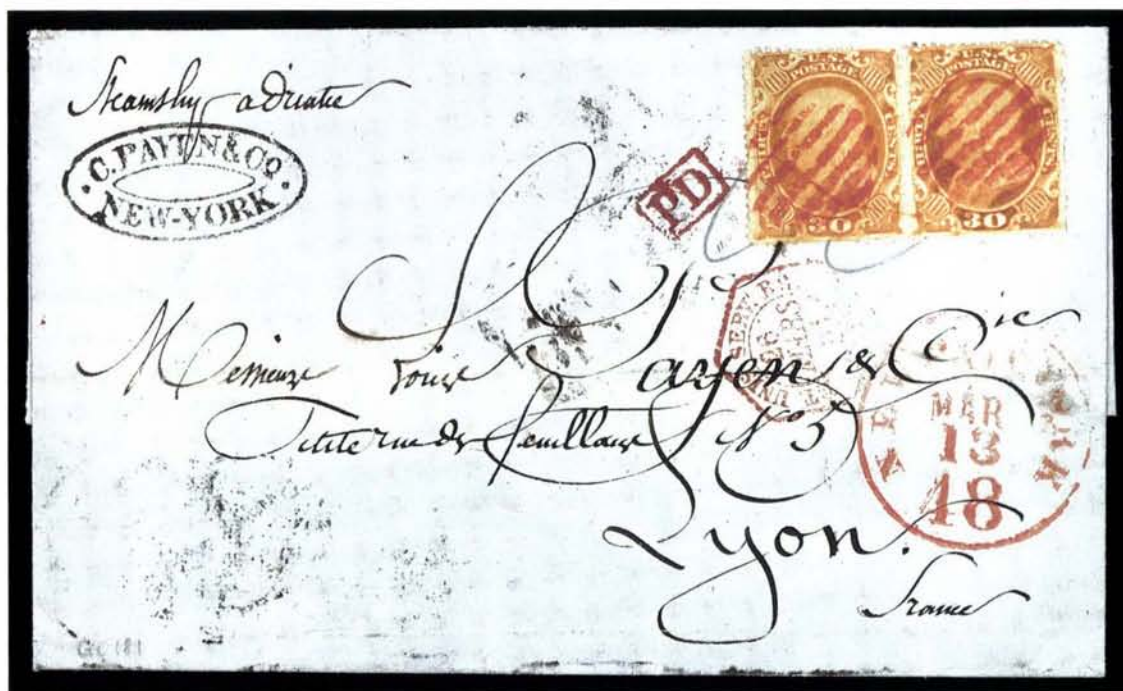 Steamship adriatic
C. PAYEN & CO
NEW-YORK
U.S.
POSTAGE
THIRTY
CENTS
30
U.S.
POSTAGE
THIRTY
CENTS
30
PD
Messieurs Louis Payen & Cie
Petite rue des feuillans No 5
Lyon.
France
NEW YORK
MAR
13
48